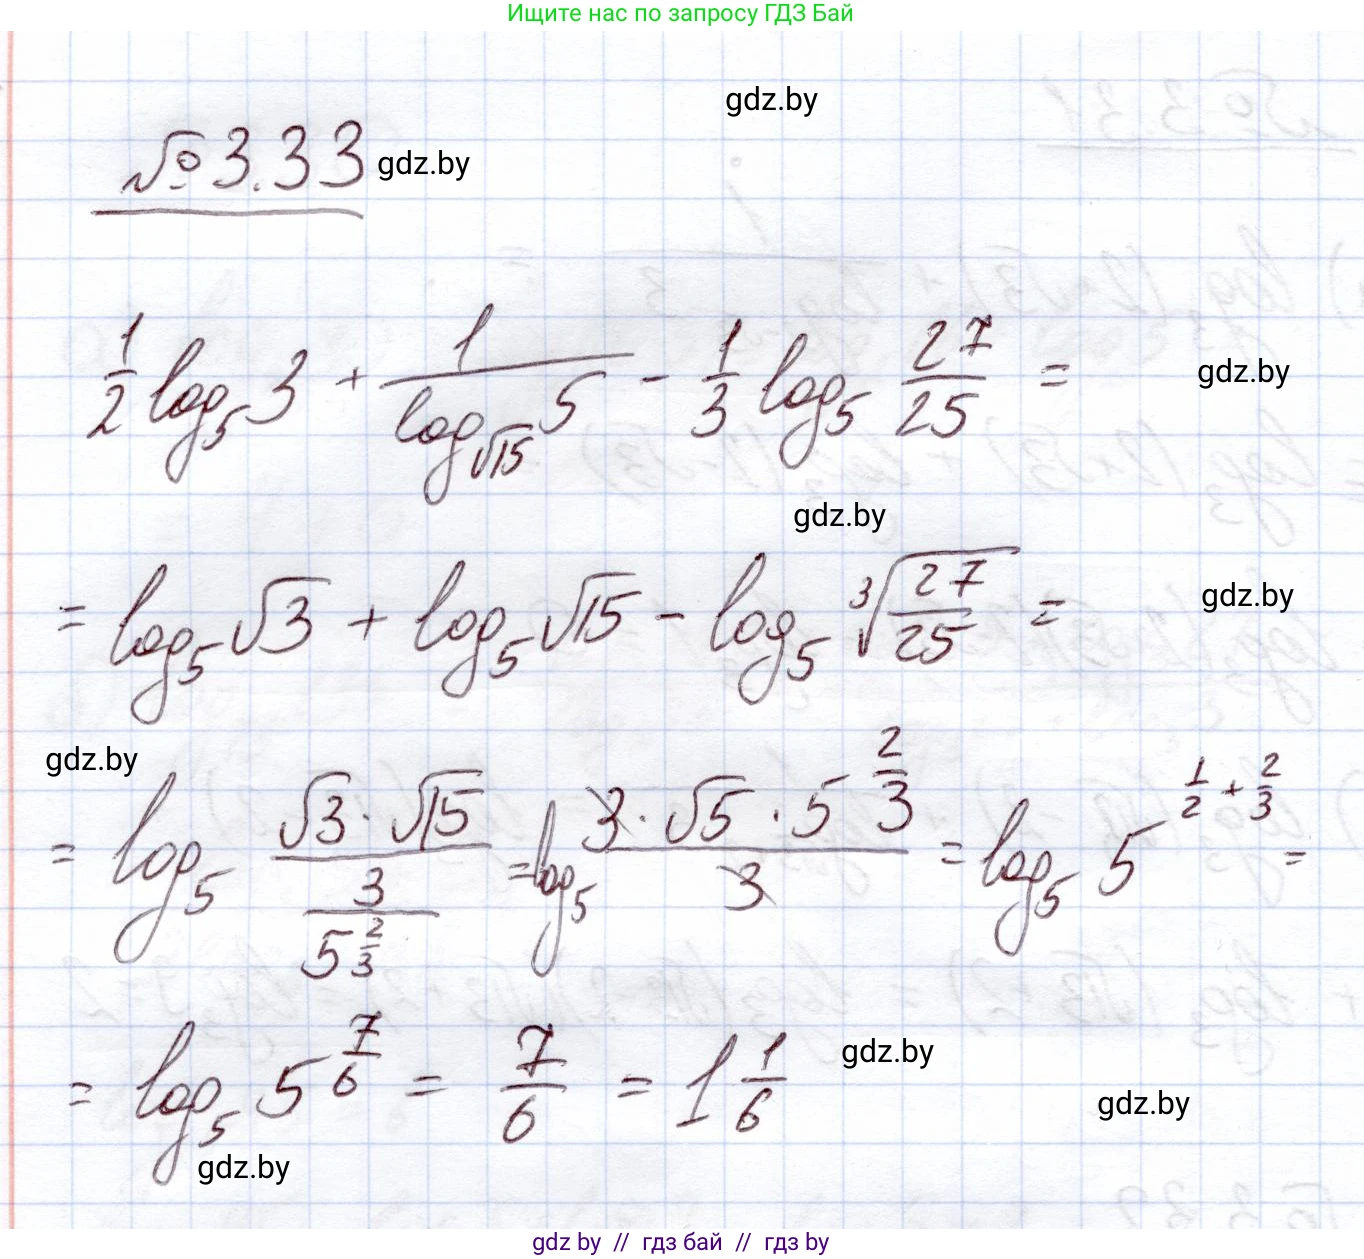 Ищите нас по запросу ГДЗ Бай
gdz.by
№ 3.33 gdz.by
1/2 log₅ 3 + 1/(log_√15 5) - 1/3 log₅ 27/25 = gdz.by
gdz.by
= log₅ √3 + log₅ √15 - log₅ ∛(27/25) = gdz.by
gdz.by
= log₅ (√3 · √15)/(3/5^(2/3)) = log₅ (3 · √5 · 5^(2/3))/3 = log₅ 5^(1/2 + 2/3) =
= log₅ 5^(7/6) = 7/6 = 1 1/6 gdz.by
gdz.by
gdz.by
gdz by // гдз бай // гдз by